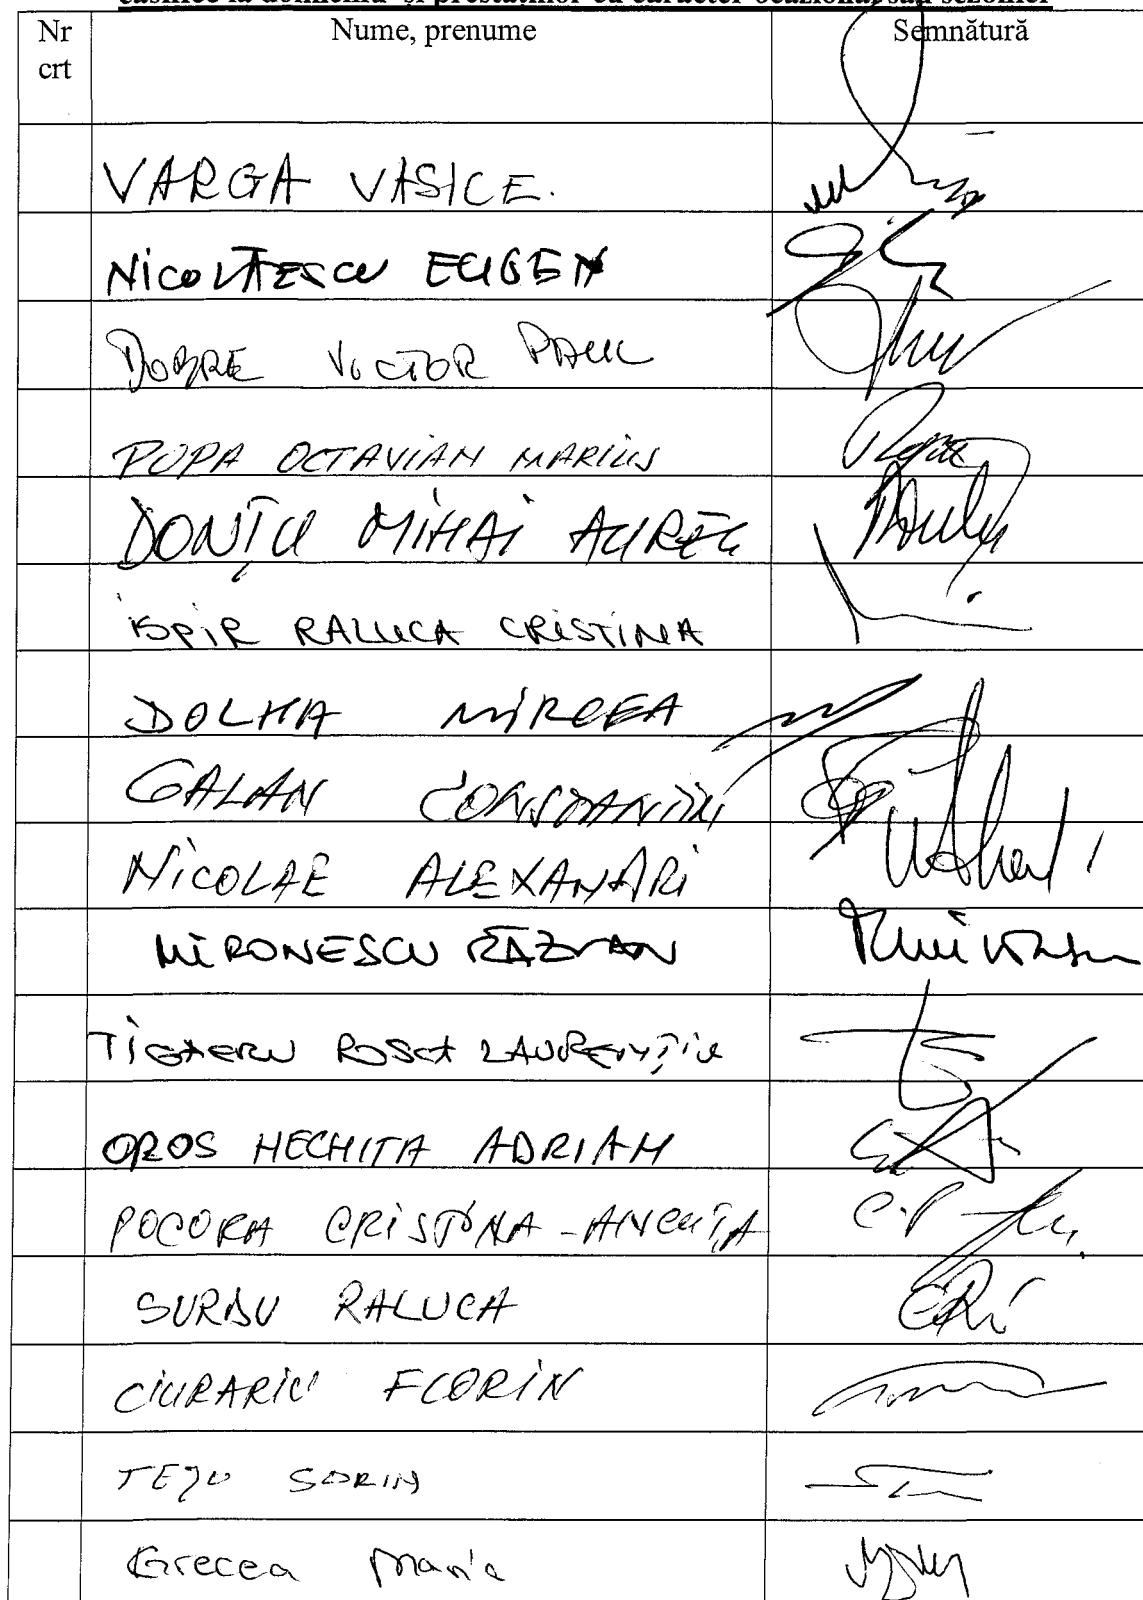 casnice la domiciliu și prestațiilor cu caracter ocazional sau sezonier
Nr crt Nume, prenume Semnătură
VARGA VASILE.
NICOLĂESCU EUGEN
DOBRE VICTOR PAUL
POPA OCTAVIAN MARIUS
DONȚU MIHAI AUREL
ISPIR RALUCA CRISTINA
DOLHA MIRCEA
GALAN CONSTANTIN
NICOLAE ALEXANDRI
MIRONESCU RĂZVAN
TIGAERU ROSCA LAURENȚIU
OROS NECHITA ADRIAN
POCORA CRISTINA-ANCUȚA
SURDU RALUCA
CIURARIU FLORIN
TEJU SORIN
Grecea Maria